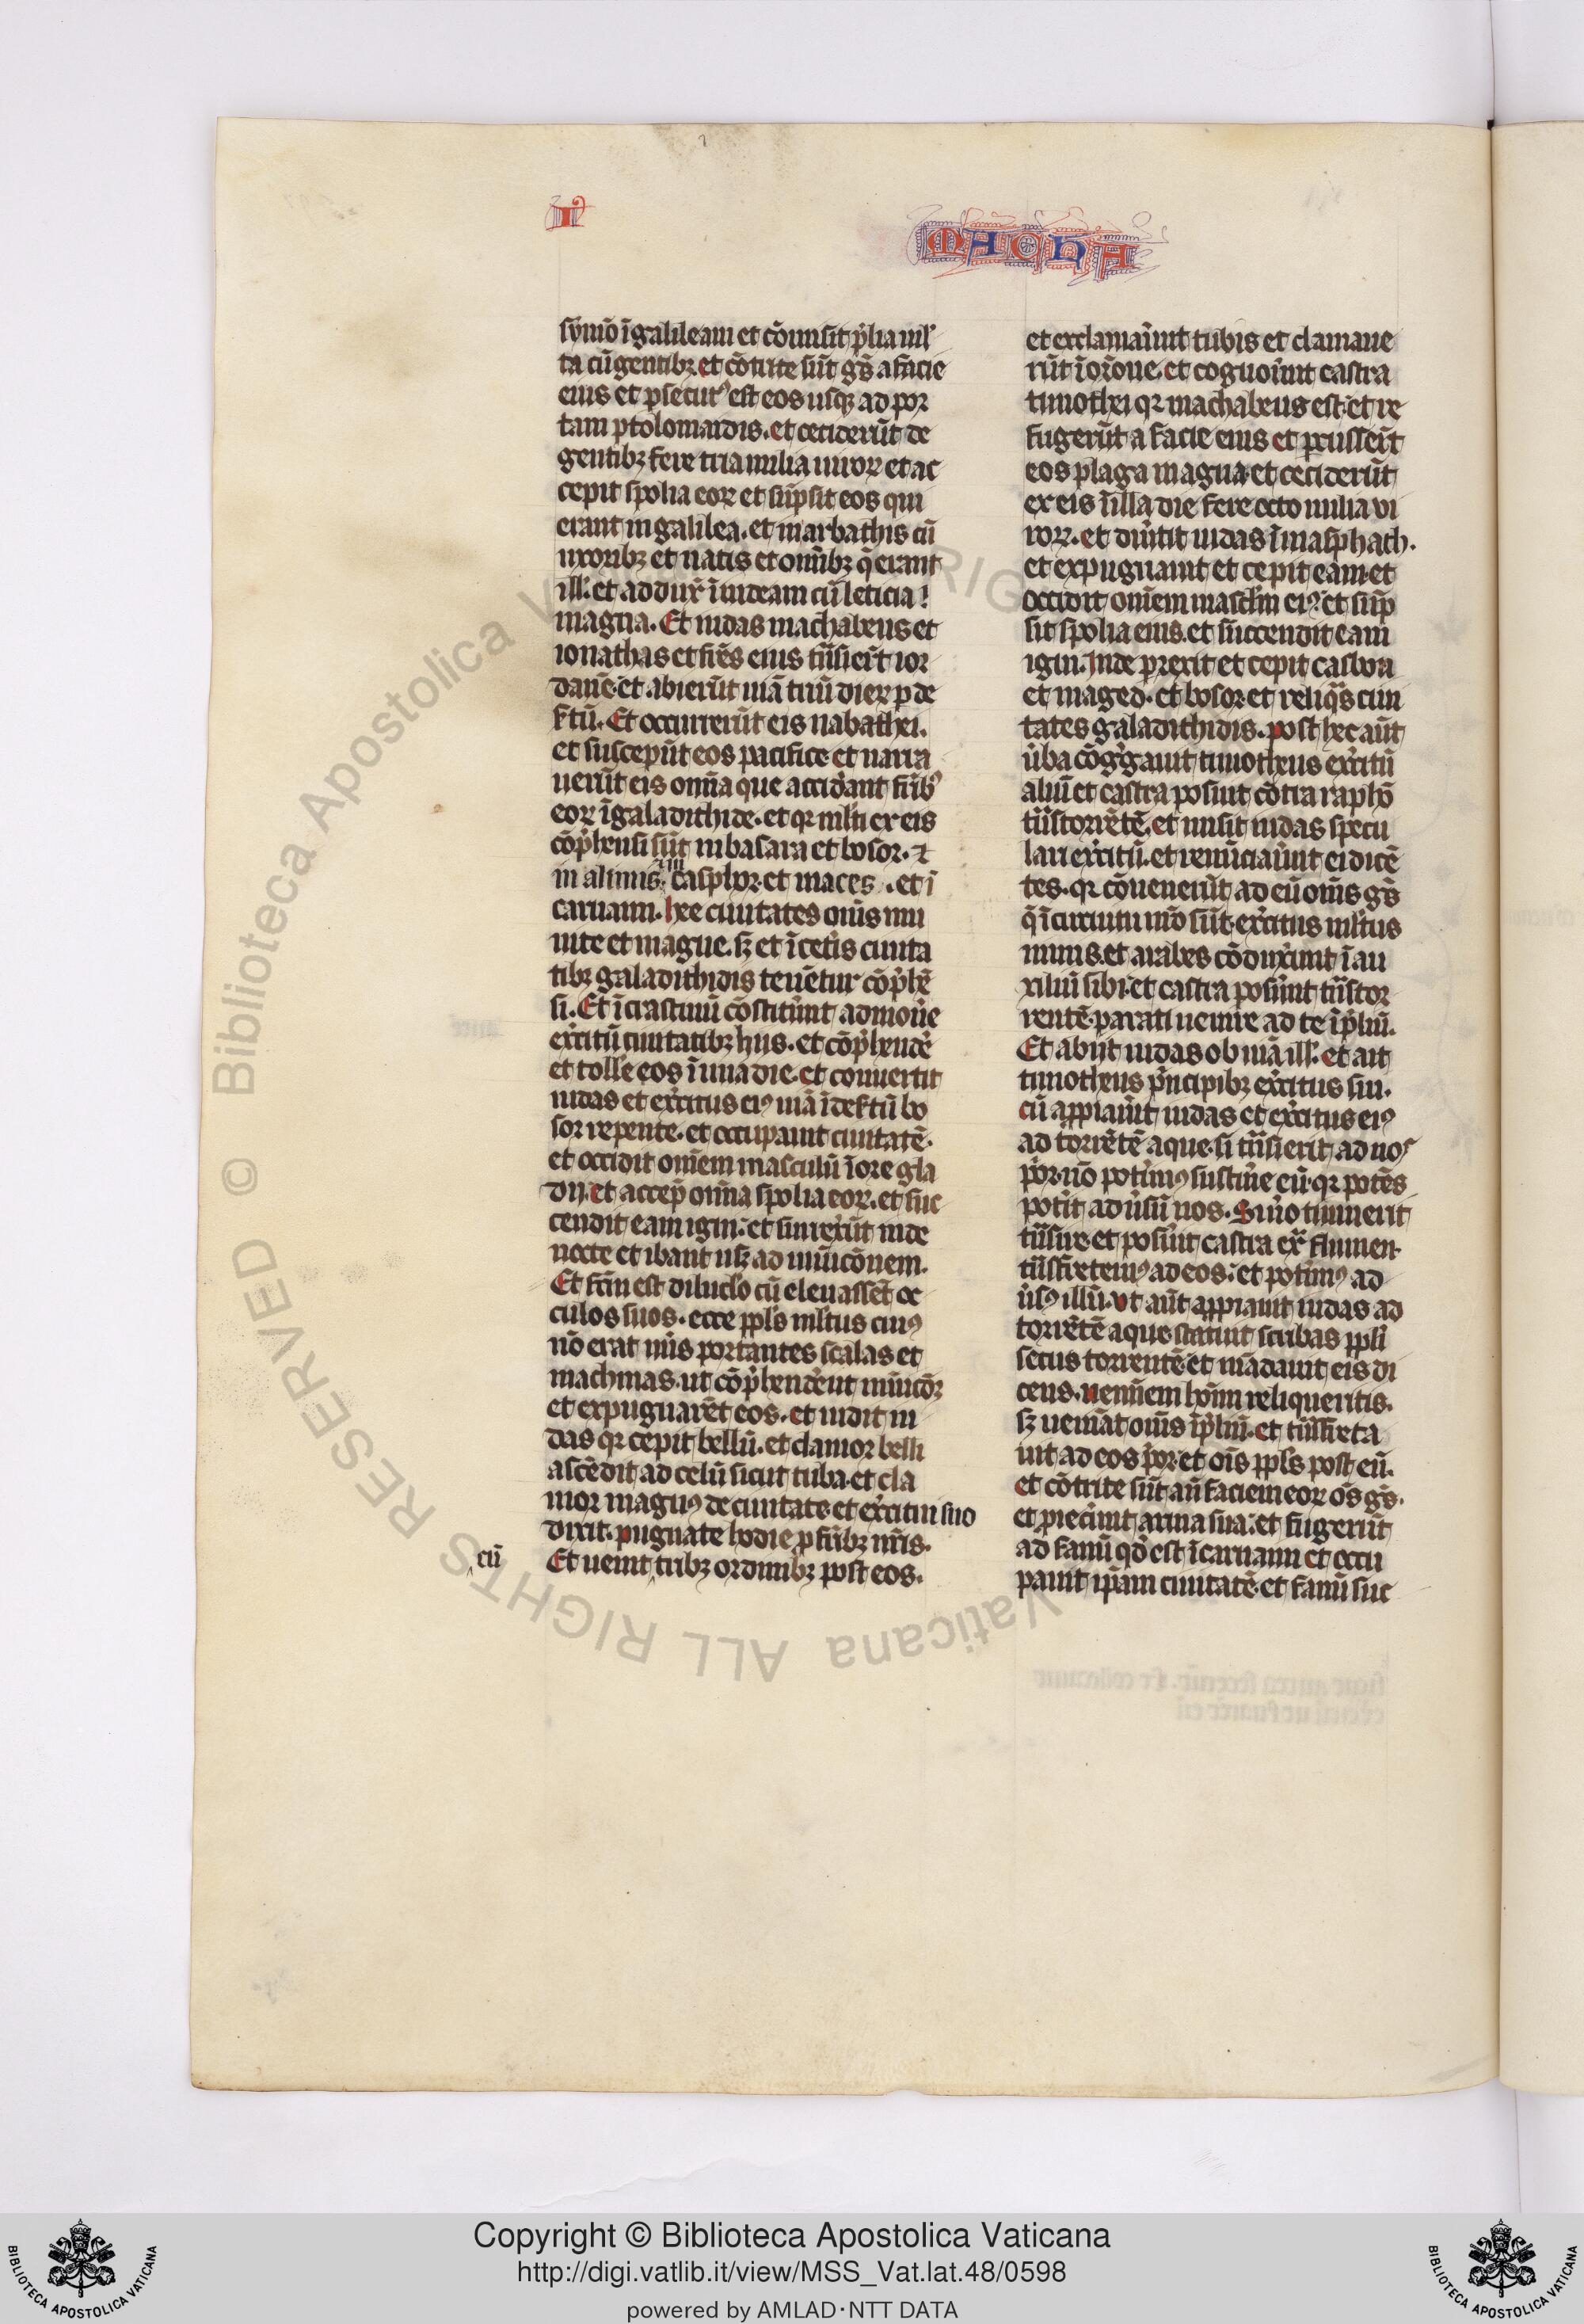 I
MACHA
symō ī galileam et cōmisit p̄lia ml̄
ta cū gentibꝫ et cōtrite sūt gēs a facie
eius et ꝑsecutꝰ est eos usqꝫ ad por
tam ptolomaidis. et ceciderūt de
gentibꝫ fere tria milia uiroꝝ et ac
cepit spolia eoꝝ et sūpsit eos qui
erant in galilea. et in arbathis cū
uxoribꝫ et natis et omībꝫ q̄ erant
ill̄. et adduxͬ ī iudeam cū leticia
magna. Et iudas machabeus et
ionathas et frēs eius trāsierūt ior
danē. et abierūt uiā triū dieꝝ ꝑ de
ẜtū. Et occurrerūt eis nabathei.
et susceperūt eos pacifice et narra
uerūt eis omīa que acciderant frībꝰ
eoꝝ ī galadithide. et qꝛ ml̄ti ex eis
cōp̄hensi sūt in basara et bosor. ⁊
in alimis. casphor. et maces . et ī
carnaim. hee ciuitates om̄s mu
nite et magne. sꝫ et ī cetis ciuita
tibꝫ galadithidis tenētur cōp̄hē
si. Et ī crastinū cōstituunt admoue
exercitū ciuitatibꝫ hiis. et cōp̄hendē
et tolle eos ī una die. et conuertit
iudas et exercitus eiꝰ uiā ī deẜtū bo
sor repente. et occupauit ciuitatē.
et occidit omēm masculū ī ore gla
dii. et accep̄ omīa spolia eoꝝ. et suc
cendit eam igni. et surrexūt inde
nocte et ibant usqꝫ ad municōnem.
Et fcm̄ est diluclo cū eleuassēt oc
culos suos. ecce ppl̄s ml̄tus cuiꝰ
nō erat nūs portantes scalas et
machinas. ut cōp̄henderent municōꝫ
et expugnarēt eos. et uidit iu
das qꝛ cepit bellū. et clamor belli
ascēdit ad celū sicut tuba. et cla
mor magnꝰ de ciuitate. et exercitui suo
dixit. pugnate hodie ꝓ frībꝫ nr̄is.
cū
Et uenit tribꝫ ordinibꝫ post eos.
et exclamauerunt tubis et clamaue
rūt ī orōne. et cognouerunt castra
timothei qꝛ machabeus est. et re
fugerūt a facie eius et ꝑcusserūt
eos plaga magna. et ceciderūt
ex eis ī illa die fere octo milia vi
roꝝ. et diuertit iudas ī masphath.
et expugnauit et cepit eam. et
occidit omēm masclm̄ eiꝰ. et sūp
sit spolia eius. et succendit eam
igni. Inde ꝑrexit et cepit casbon
et maged. et bosor. et reliqͣs ciui
tates galadithidis. post hec aūt
ūba cōgͬgauit timotheus exercitū
aliū et castra posuit cōtra raphō
trās torrētē. et misit iudas specu
lari exercitū. et renūciauerunt ei dicē
tes. qꝛ cōuenerūt ad eū om̄s gēs
q̄ ī circuitu nrō sūt. exercitus ml̄tus
nimis. et arabes cōduxerunt ī au
xiliū sibi. et castra posuerunt trās tor
rentē. parati uenire ad te ī p̄liū.
Et abiit iudas obuiā ill̄. et ait
timotheus p̄ncipibꝫ exercitus sui.
cū appiauit iudas et exercitus eiꝰ
ad torrētē aque. si trāsierit ad nos
p̄or. nō poterimꝰ sustine eū. qꝛ potēs
poterit aduersū nos. Si uō timuerit
trāsire. et posuerit castra exͣ flumen.
trāsfretemꝰ ad eos. et poterimꝰ ad
uersꝰ illū. vt aūt appiauit iudas ad
torrētē aque. statuit scribas ppl̄i
secus torrentē. et mādauit eis di
cens. neminem hōīm reliqueritis.
sꝫ ueniāt om̄s ī p̄liū. et trāsfreta
uit ad eos p̄or. et oīs ppl̄s post eū.
et cōtrite sūt an̄ faciem eoꝝ oēs gēs.
et ꝓiecerunt arma sua. et fugerūt
ad fanū qd̄ est ī carnaim et occu
pauit ip̄am ciuitatē. et fanū suc
Copyright © Biblioteca Apostolica Vaticana
http://digi.vatlib.it/view/MSS_Vat.lat.48/0598
powered by AMLAD·NTT DATA
BIBLIOTECA APOSTOLICA VATICANA
BIBLIOTECA APOSTOLICA VATICANA